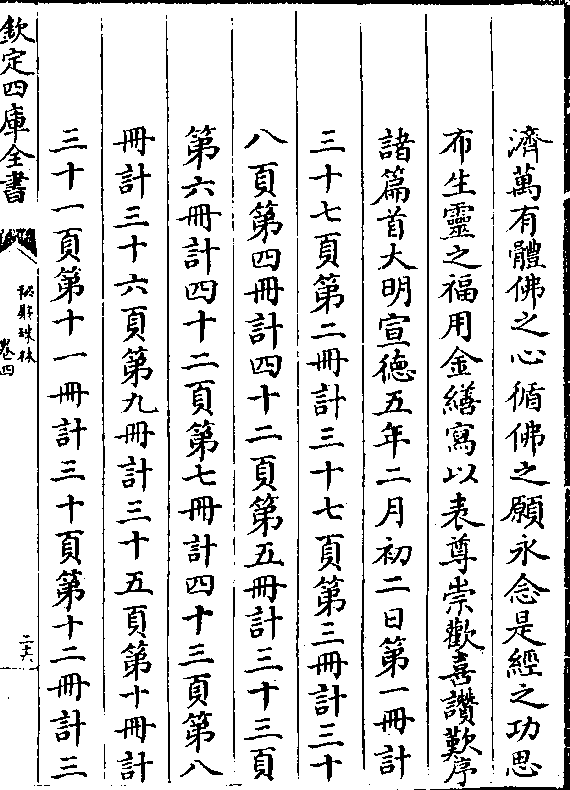 濟萬有體佛之心循佛之願永念是經之功思
布生靈之福用金繕寫以表尊崇歡喜讚歎序
諸篇首大明宣德五年二月初二日第一冊計
三十七頁第二冊計三十七頁第三冊計三十
八頁第四冊計四十二頁第五冊計三十三頁
第六冊計四十二頁第七冊計四十三頁第八
冊計三十六頁第九冊計三十五頁第十冊計
三十一頁第十一冊計三十頁第十二冊計三
欽定四庫全書
秘殿珠林
卷四
二六